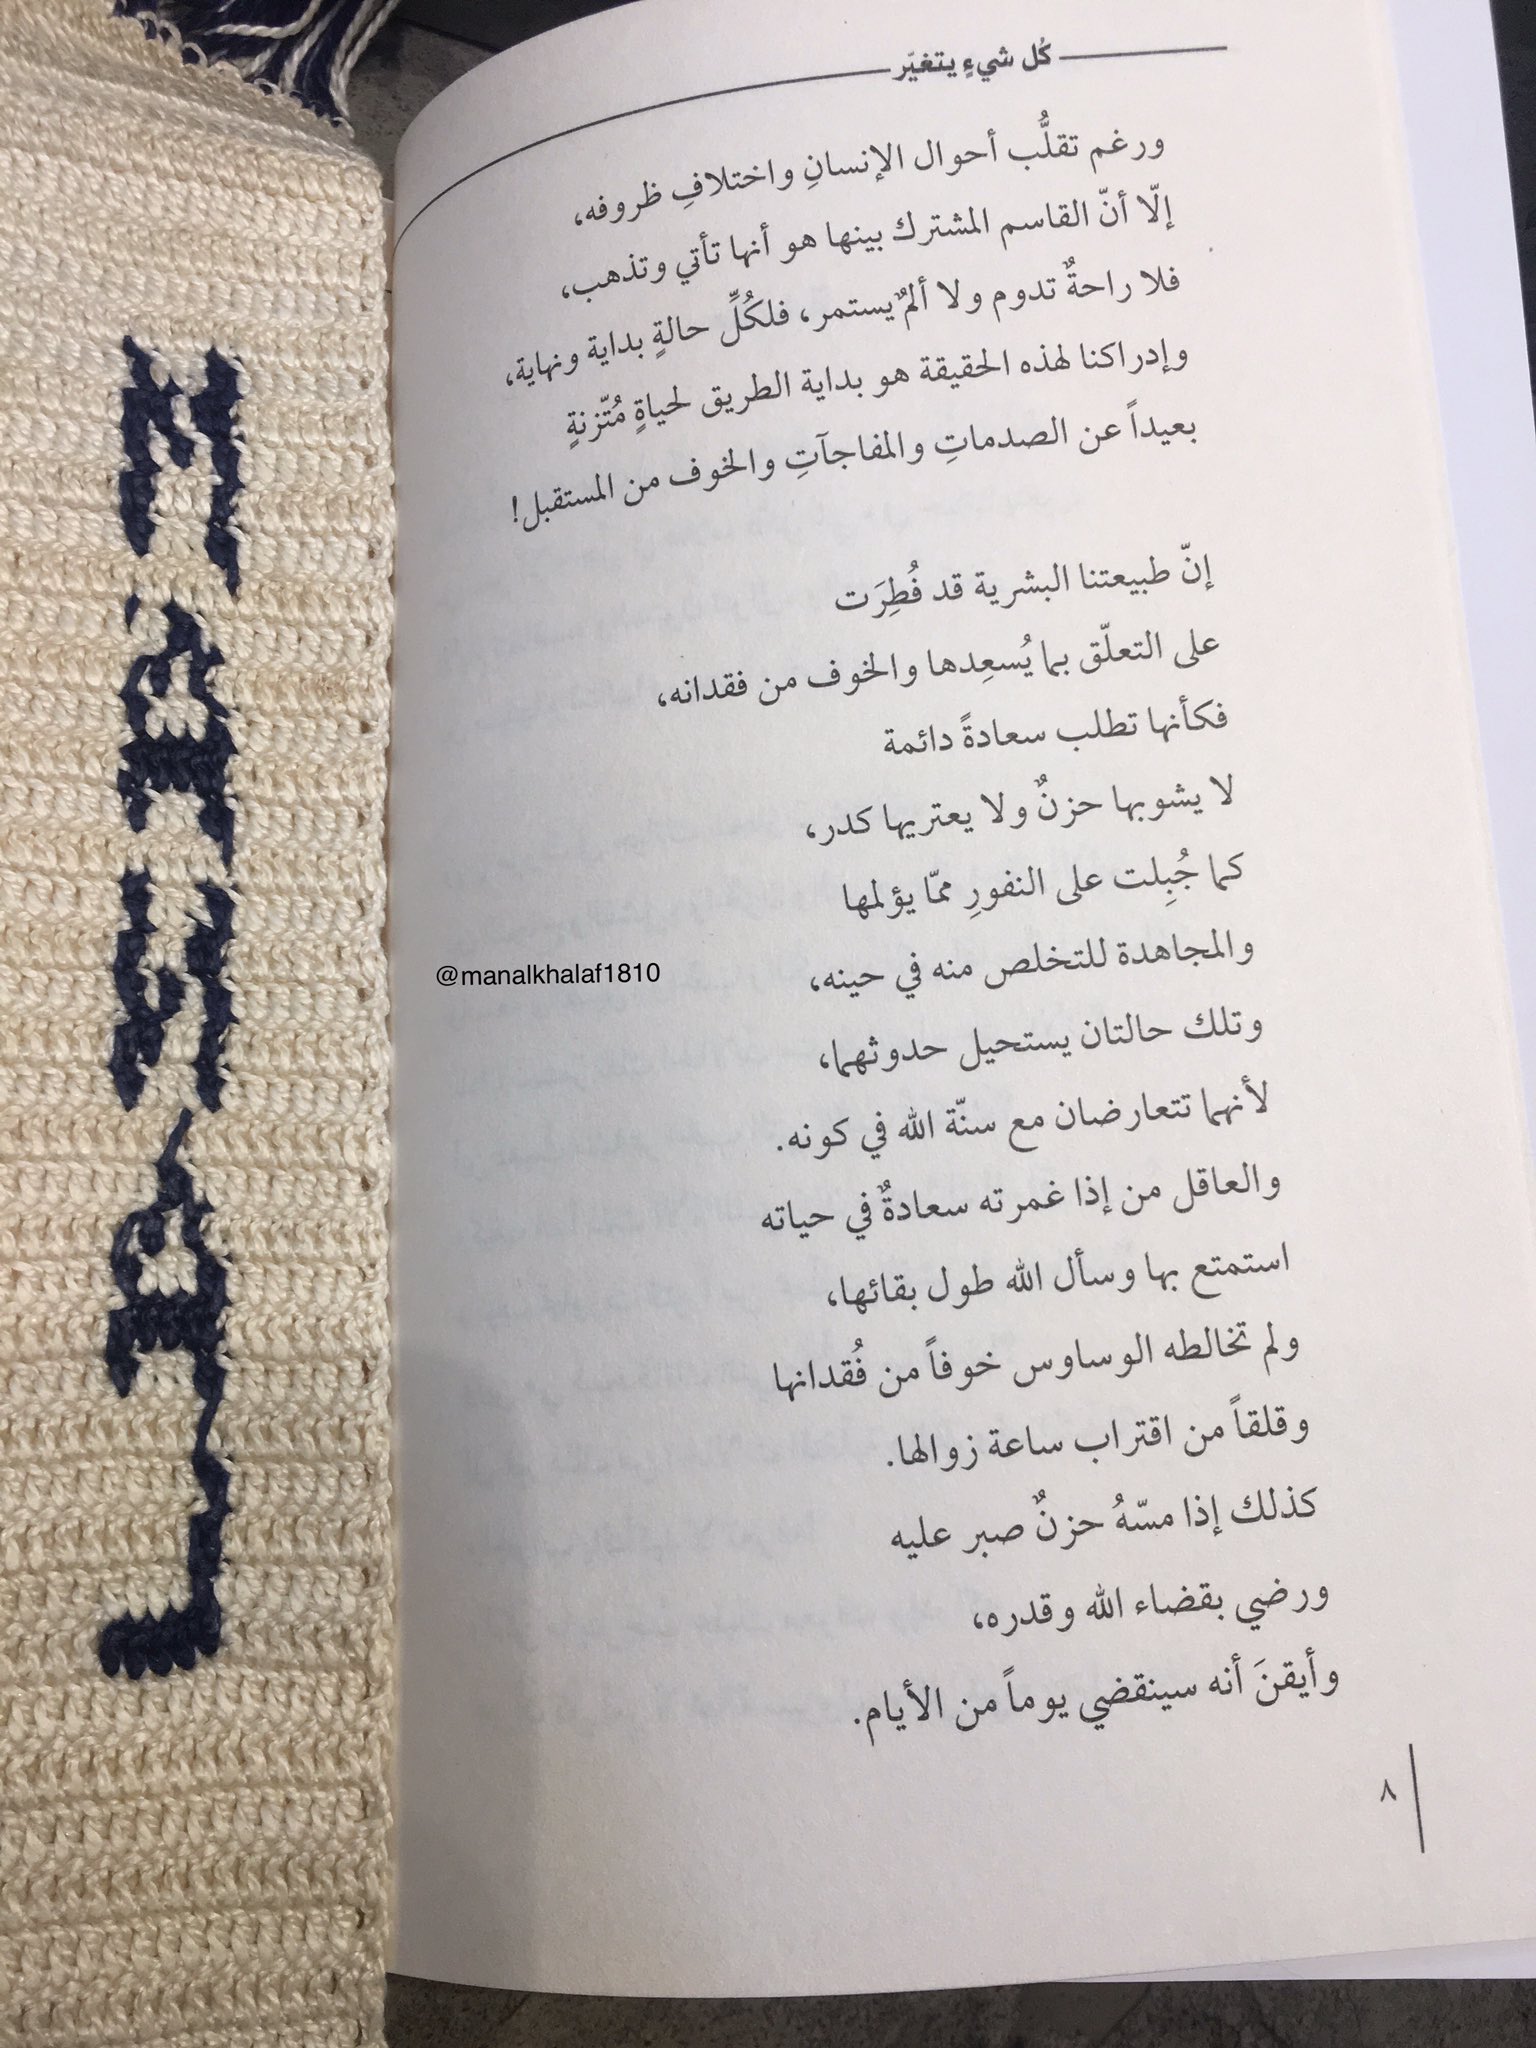 كُل شيءٍ يتغيّر
ورغم تقلُّب أحوال الإنسانِ واختلافِ ظروفه،
إلّا أنّ القاسم المشترك بينها هو أنها تأتي وتذهب،
فلا راحةٌ تدوم ولا ألمٌ يستمر، فلكُلِّ حالةٍ بداية ونهاية،
وإدراكنا لهذه الحقيقة هو بداية الطريق لحياةٍ مُتّزنةٍ
بعيداً عن الصدماتِ والمفاجآتِ والخوف من المستقبل!
إنّ طبيعتنا البشرية قد فُطِرَت
على التعلّق بما يُسعِدها والخوف من فقدانه،
فكأنها تطلب سعادةً دائمة
لا يشوبها حزنٌ ولا يعتريها كدر،
كما جُبِلت على النفورِ ممّا يؤلمها
والمجاهدة للتخلص منه في حينه،
@manalkhalaf1810
وتلك حالتان يستحيل حدوثهما،
لأنهما تتعارضان مع سنّة الله في كونه.
والعاقل من إذا غمرته سعادةٌ في حياته
استمتع بها وسأل الله طول بقائها،
ولم تخالطه الوساوس خوفاً من فُقدانها
وقلقاً من اقتراب ساعة زوالها.
كذلك إذا مسّهُ حزنٌ صبر عليه
ورضي بقضاء الله وقدره،
وأيقنَ أنه سينقضي يوماً من الأيام.
٨